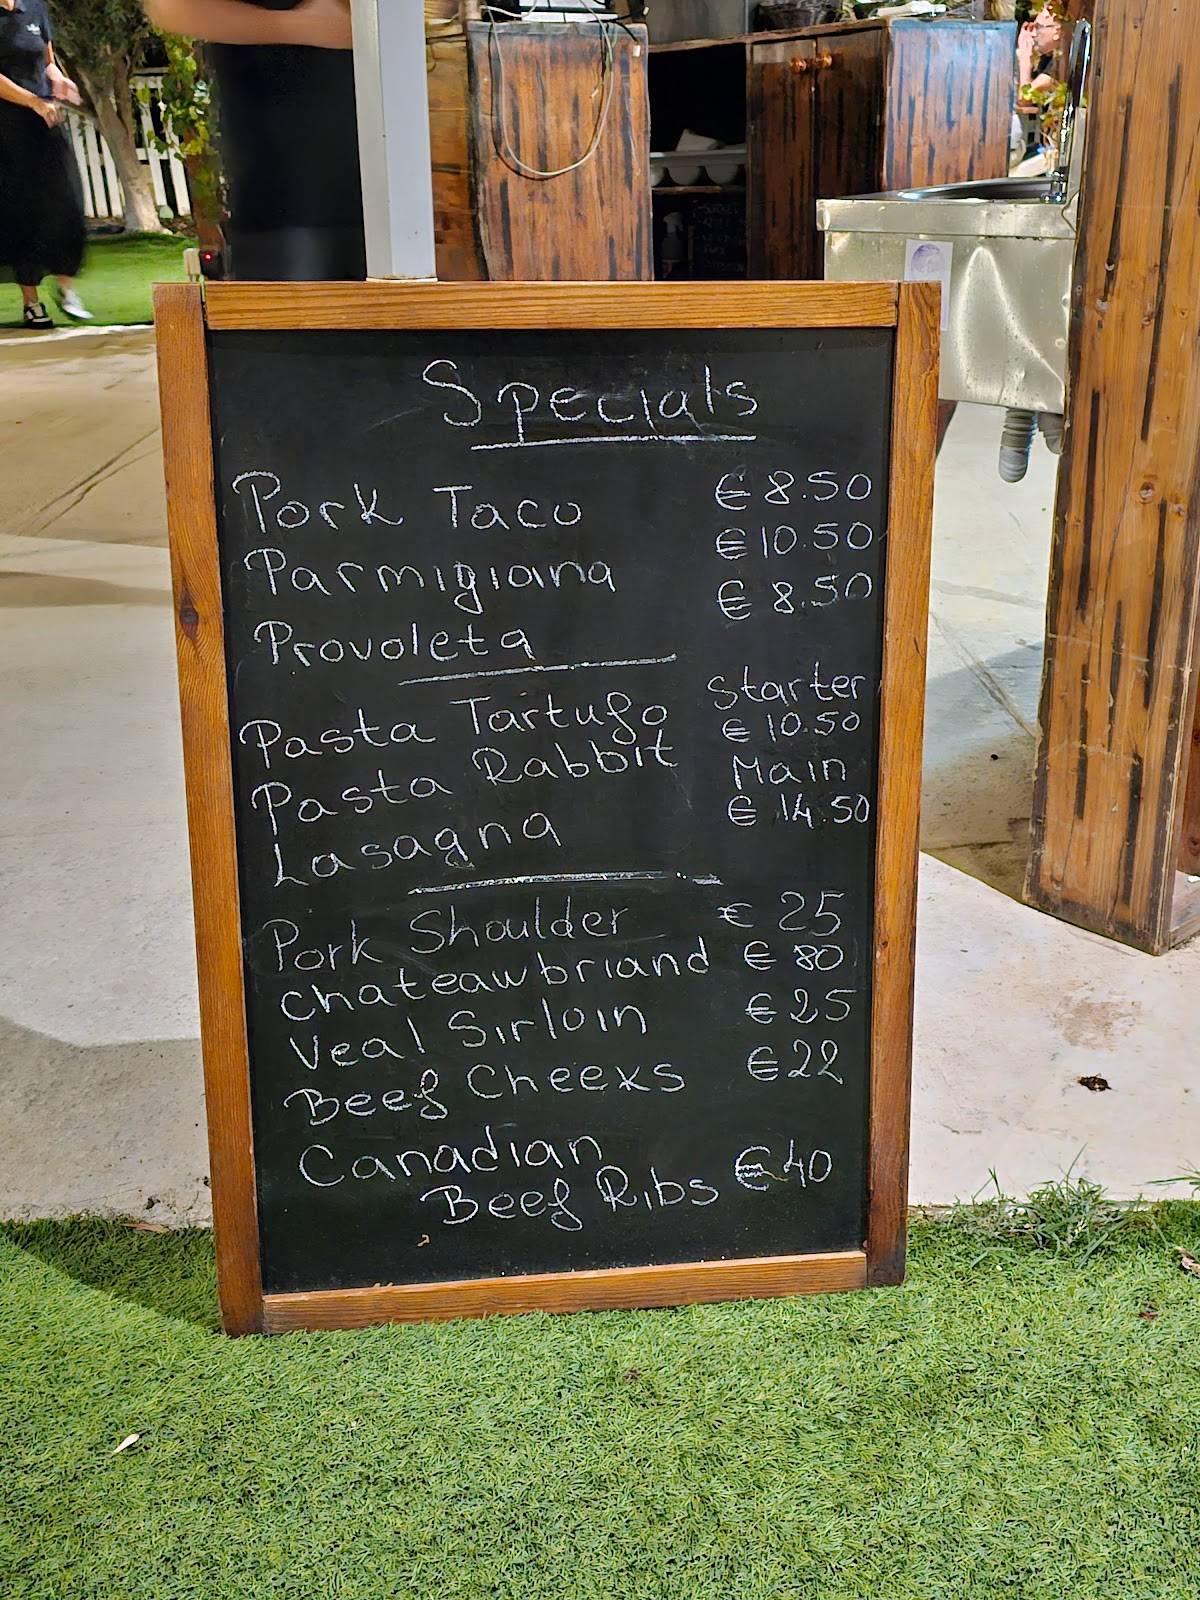 Specials
Pork Taco € 8.50
Parmigiana € 10.50
Provoleta € 8.50
Starter
Pasta Tartufo € 10.50
Pasta Rabbit Main
Lasagna € 14.50
Pork Shoulder € 25
Chateawbriand € 80
Veal Sirloin € 25
Beef Cheeks € 22
Canadian
Beef Ribs € 40